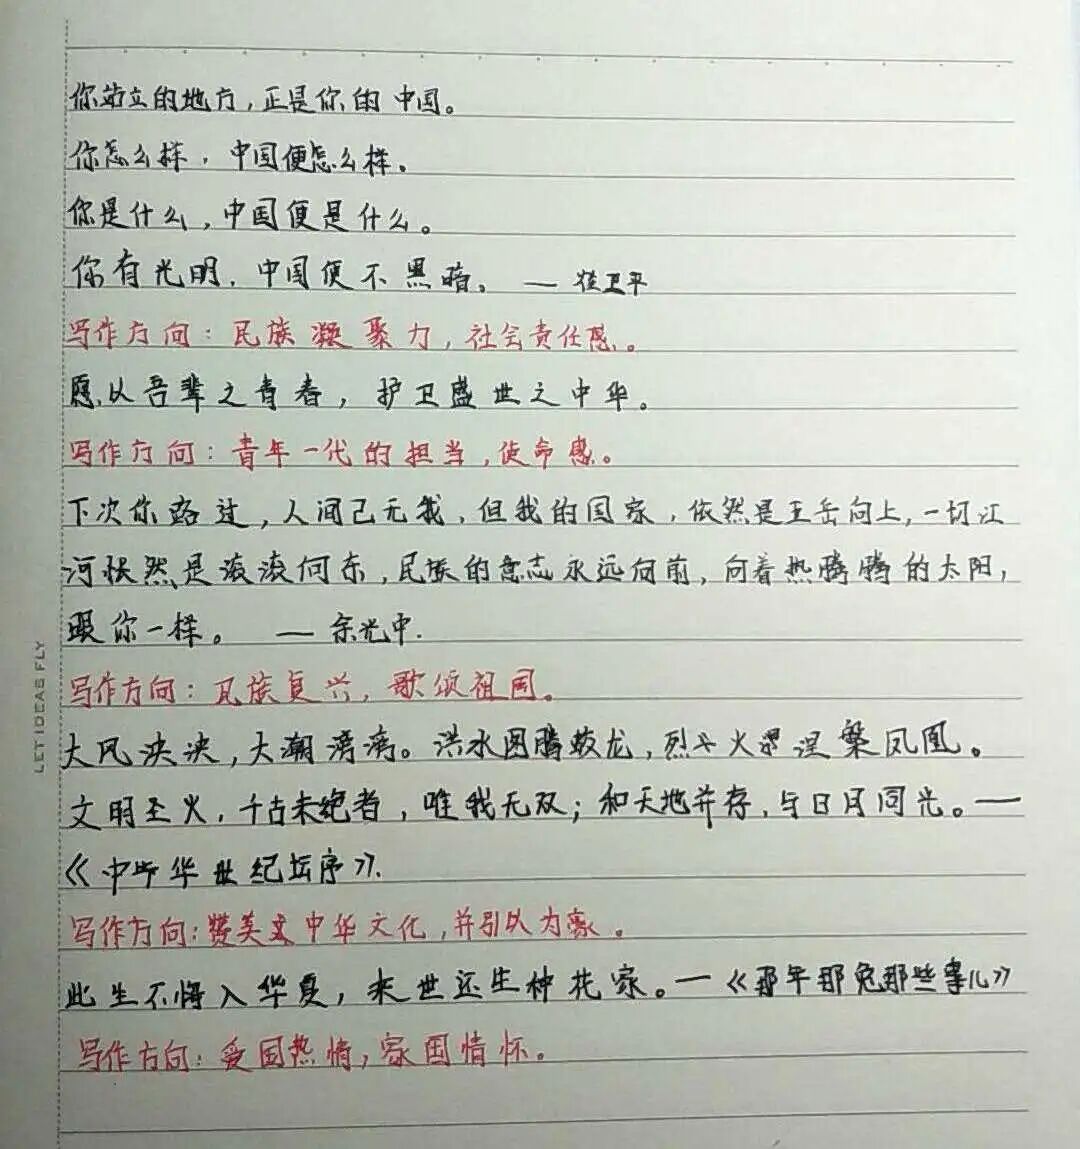 你站立的地方，正是你的中国。
你怎么样，中国便怎么样。
你是什么，中国便是什么。
你有光明，中国便不黑暗。——崔卫平
写作方向：民族凝聚力，社会责任感。
愿以吾辈之青春，护卫盛世之中华。
写作方向：青年一代的担当，使命感。
下次你路过，人间已无我，但我的国家，依然是五岳向上，一切江
河依然是滚滚向东，民族的意志永远向前，向着热腾腾的太阳，
跟你一样。——余光中.
写作方向：民族复兴，歌颂祖国。
大风泱泱，大潮滂滂。洪水图腾蛟龙，烈火涅槃凤凰。
文明圣火，千古未绝者，唯我无双；和天地并存，与日月同光。——
《中华世纪坛序》.
写作方向：赞美中华文化，并引以为豪。
此生不悔入华夏，来世还生种花家。——《那年那兔那些事儿》
写作方向：爱国热情，家国情怀。
LET IDEAS FLY